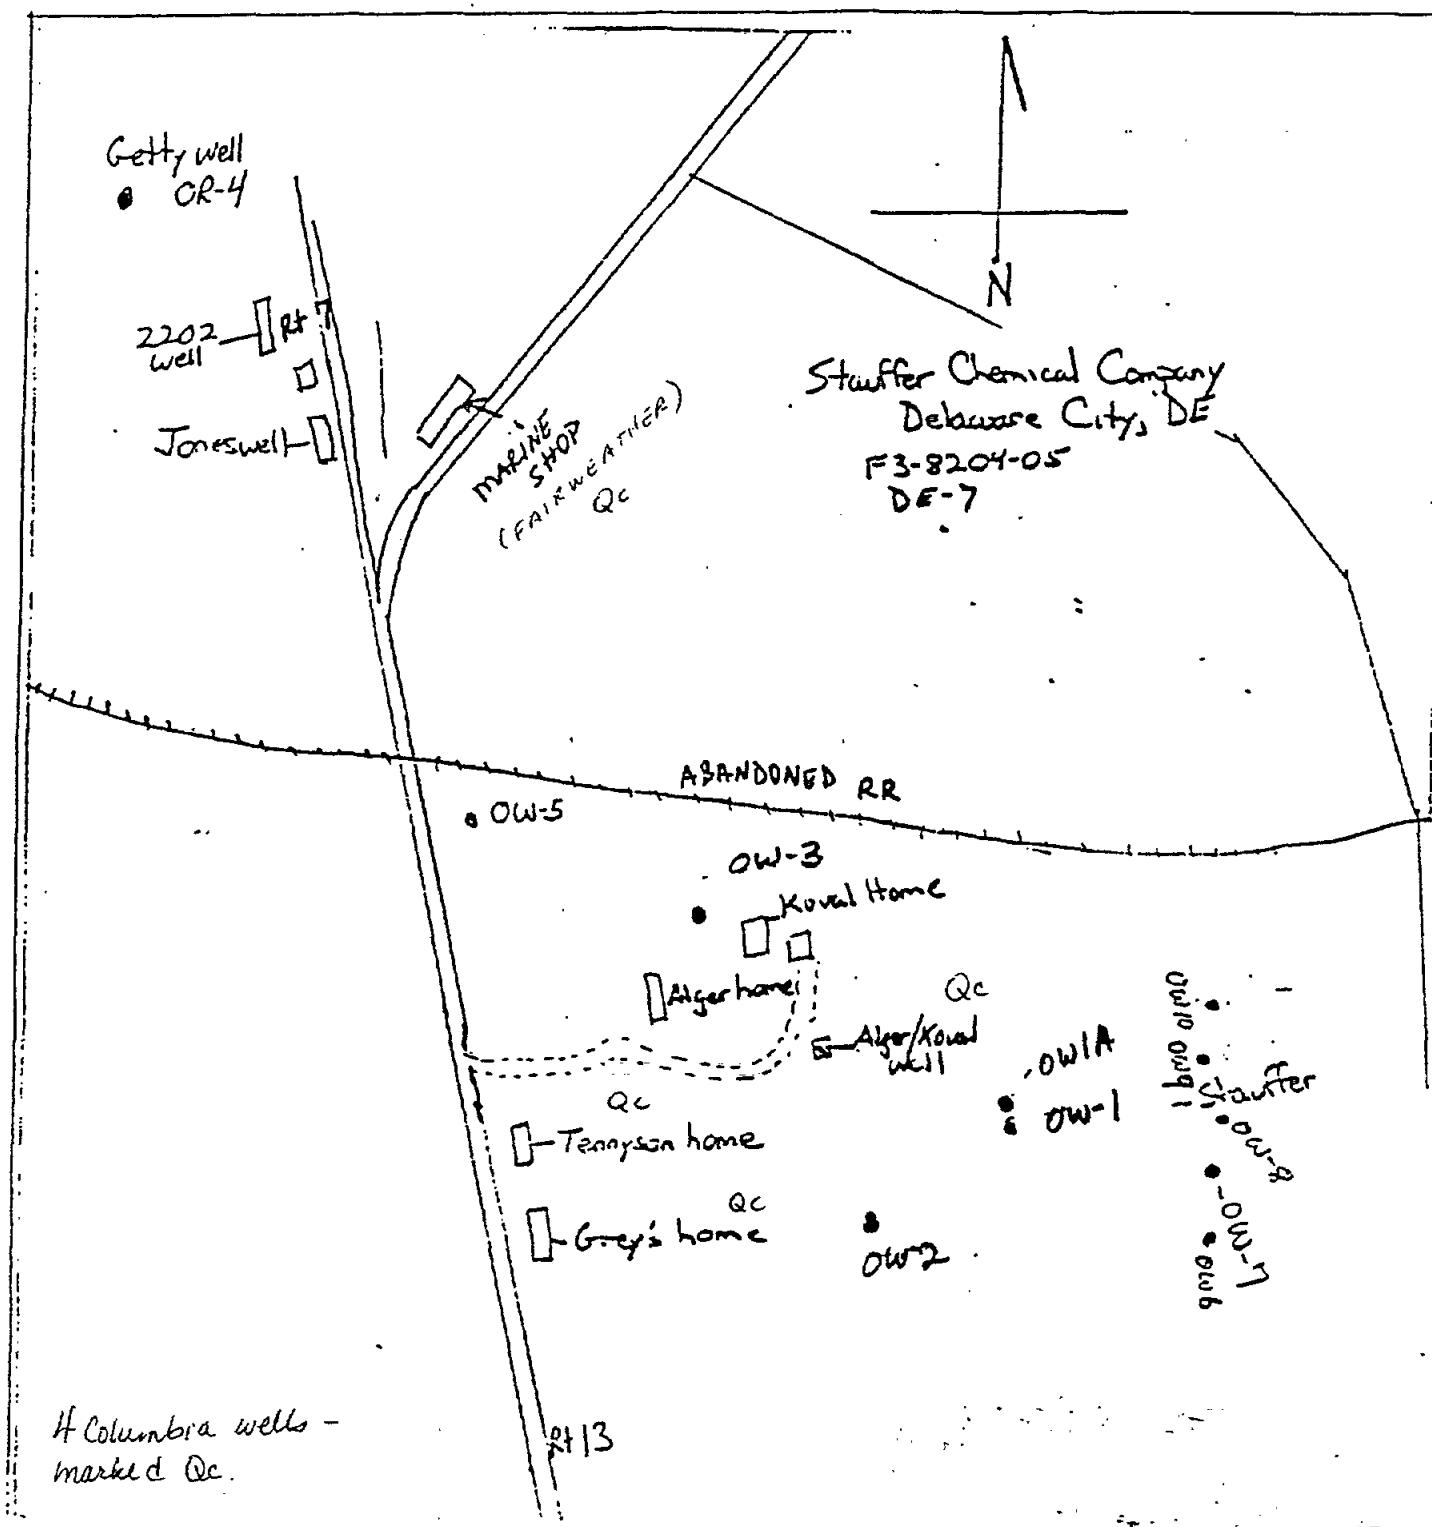 Getty well
OR-4
N
2202
well
Rt 7
Jones well
MARINE
SHOP
(FAIRWEATHER)
Qc
Stauffer Chemical Company
Delaware City, DE
F3-8204-05
DE-7
ABANDONED RR
OW-5
OW-3
Koval Home
Alger home
Qc
Alger/Koval
well
OW1A
OW-1
OW10
OW9
Stauffer
OW-8
OW-7
OW6
Qc
Tennyson home
Qc
Grey's home
OW-2
4 Columbia wells -
marked Qc.
Rt 13